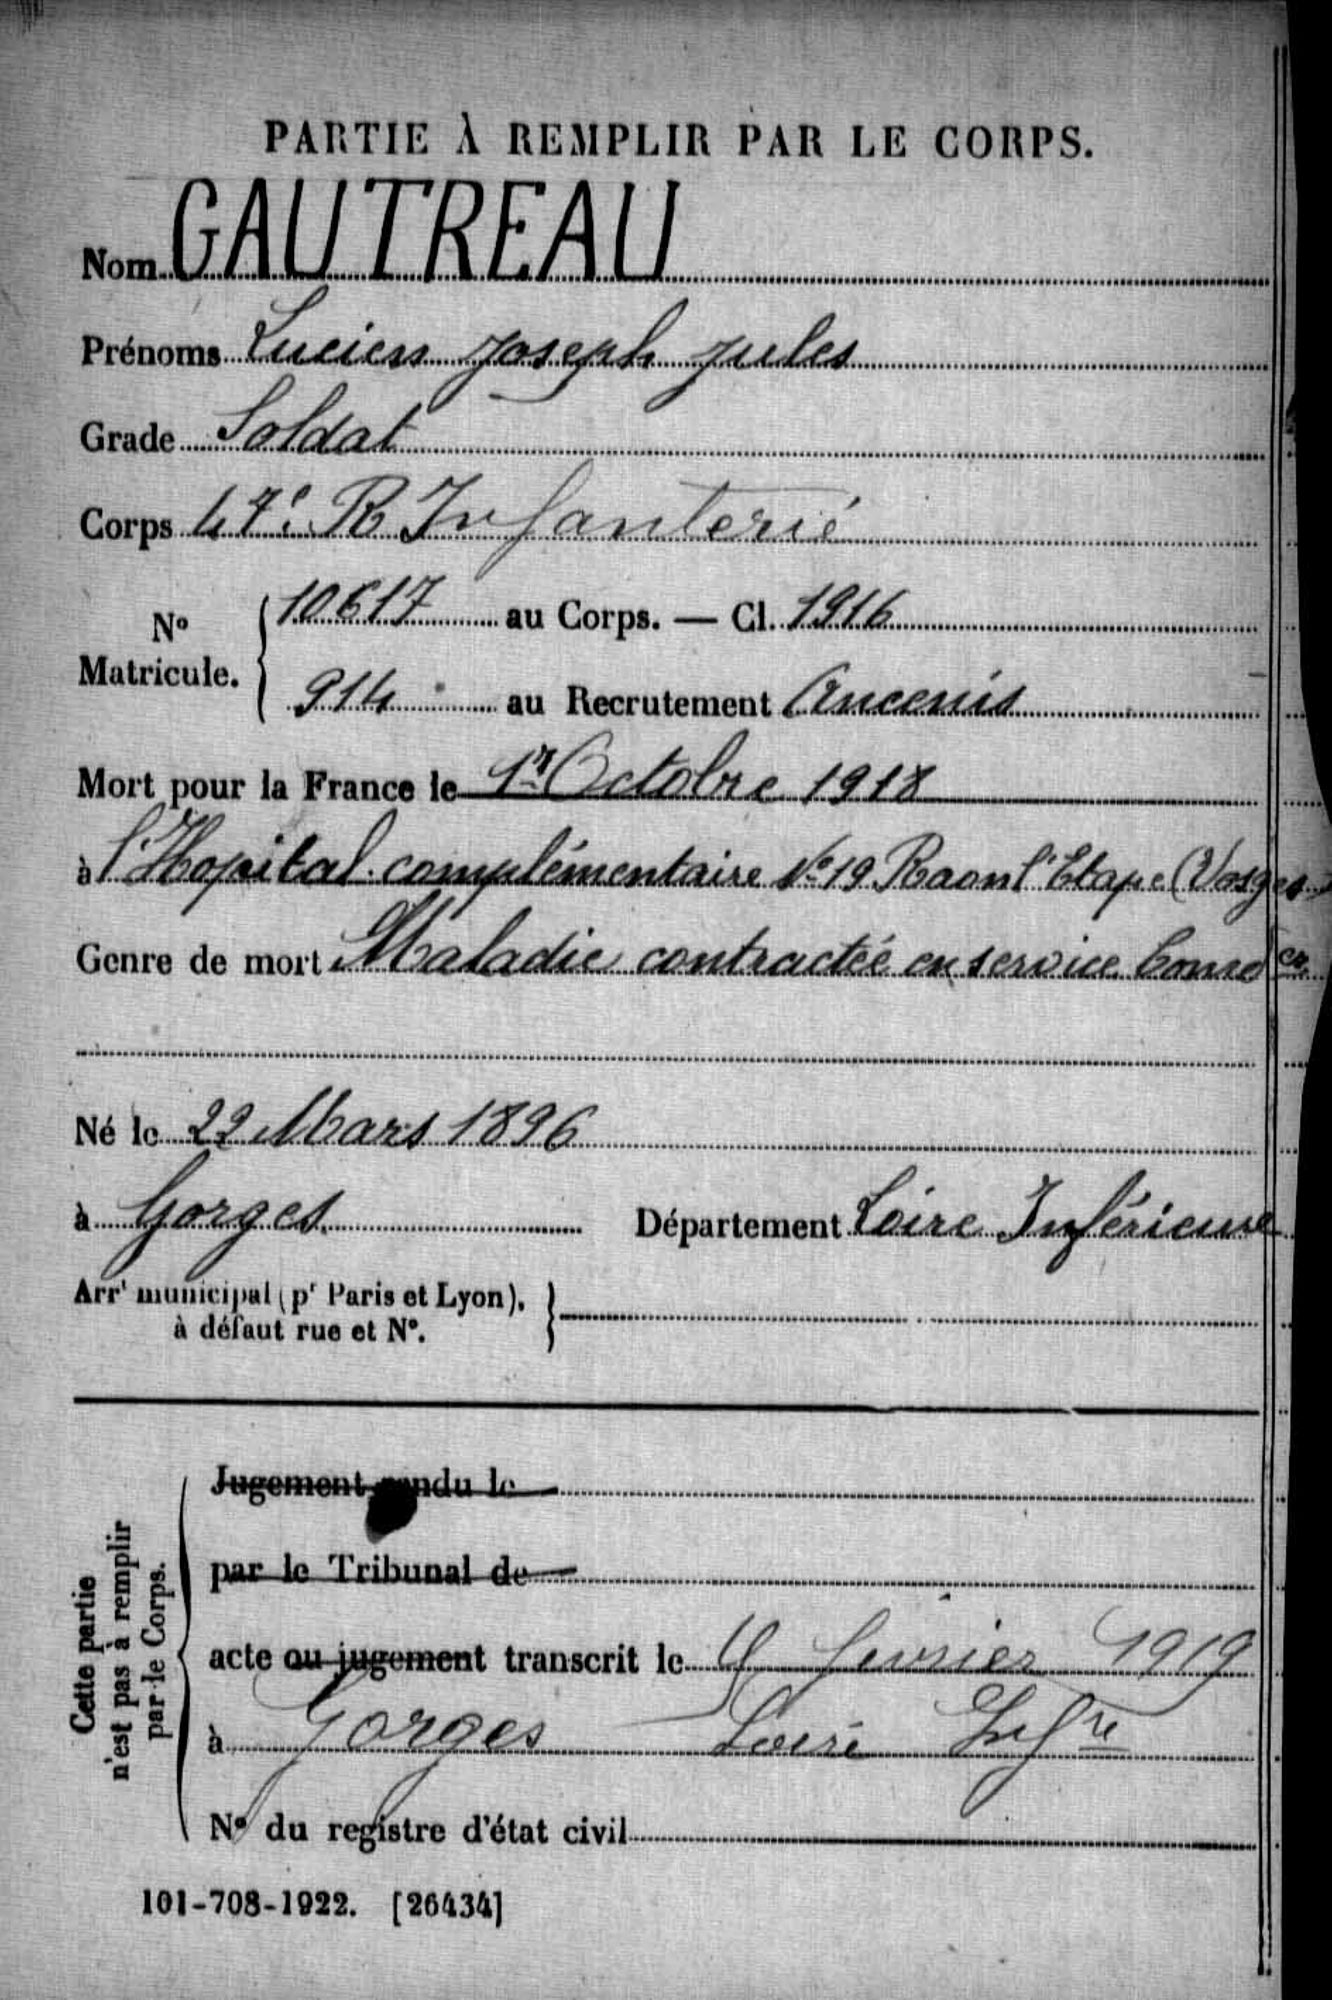 PARTIE À REMPLIR PAR LE CORPS.
Nom GAUTREAU
Prénoms Lucien Joseph Jules
Grade Soldat
Corps 47e R Infanterie
No Matricule. 10617 au Corps. — Cl. 1916
914 au Recrutement Ancenis
Mort pour la France le 1er Octobre 1918
à l'Hopital complémentaire No 19 Raon l'Etape (Vosges
Genre de mort Maladie contractée en service
Né le 22 Mars 1896
à Gorges Département Loire Inférieure
Arrt municipal (pr Paris et Lyon),
à défaut rue et No.
Cette partie
n'est pas à remplir
par le Corps.
Jugement rendu le
par le Tribunal de
acte ou jugement transcrit le 4 février 1919
à Gorges Loire Infre
No du registre d'état civil
101-708-1922. [26434]